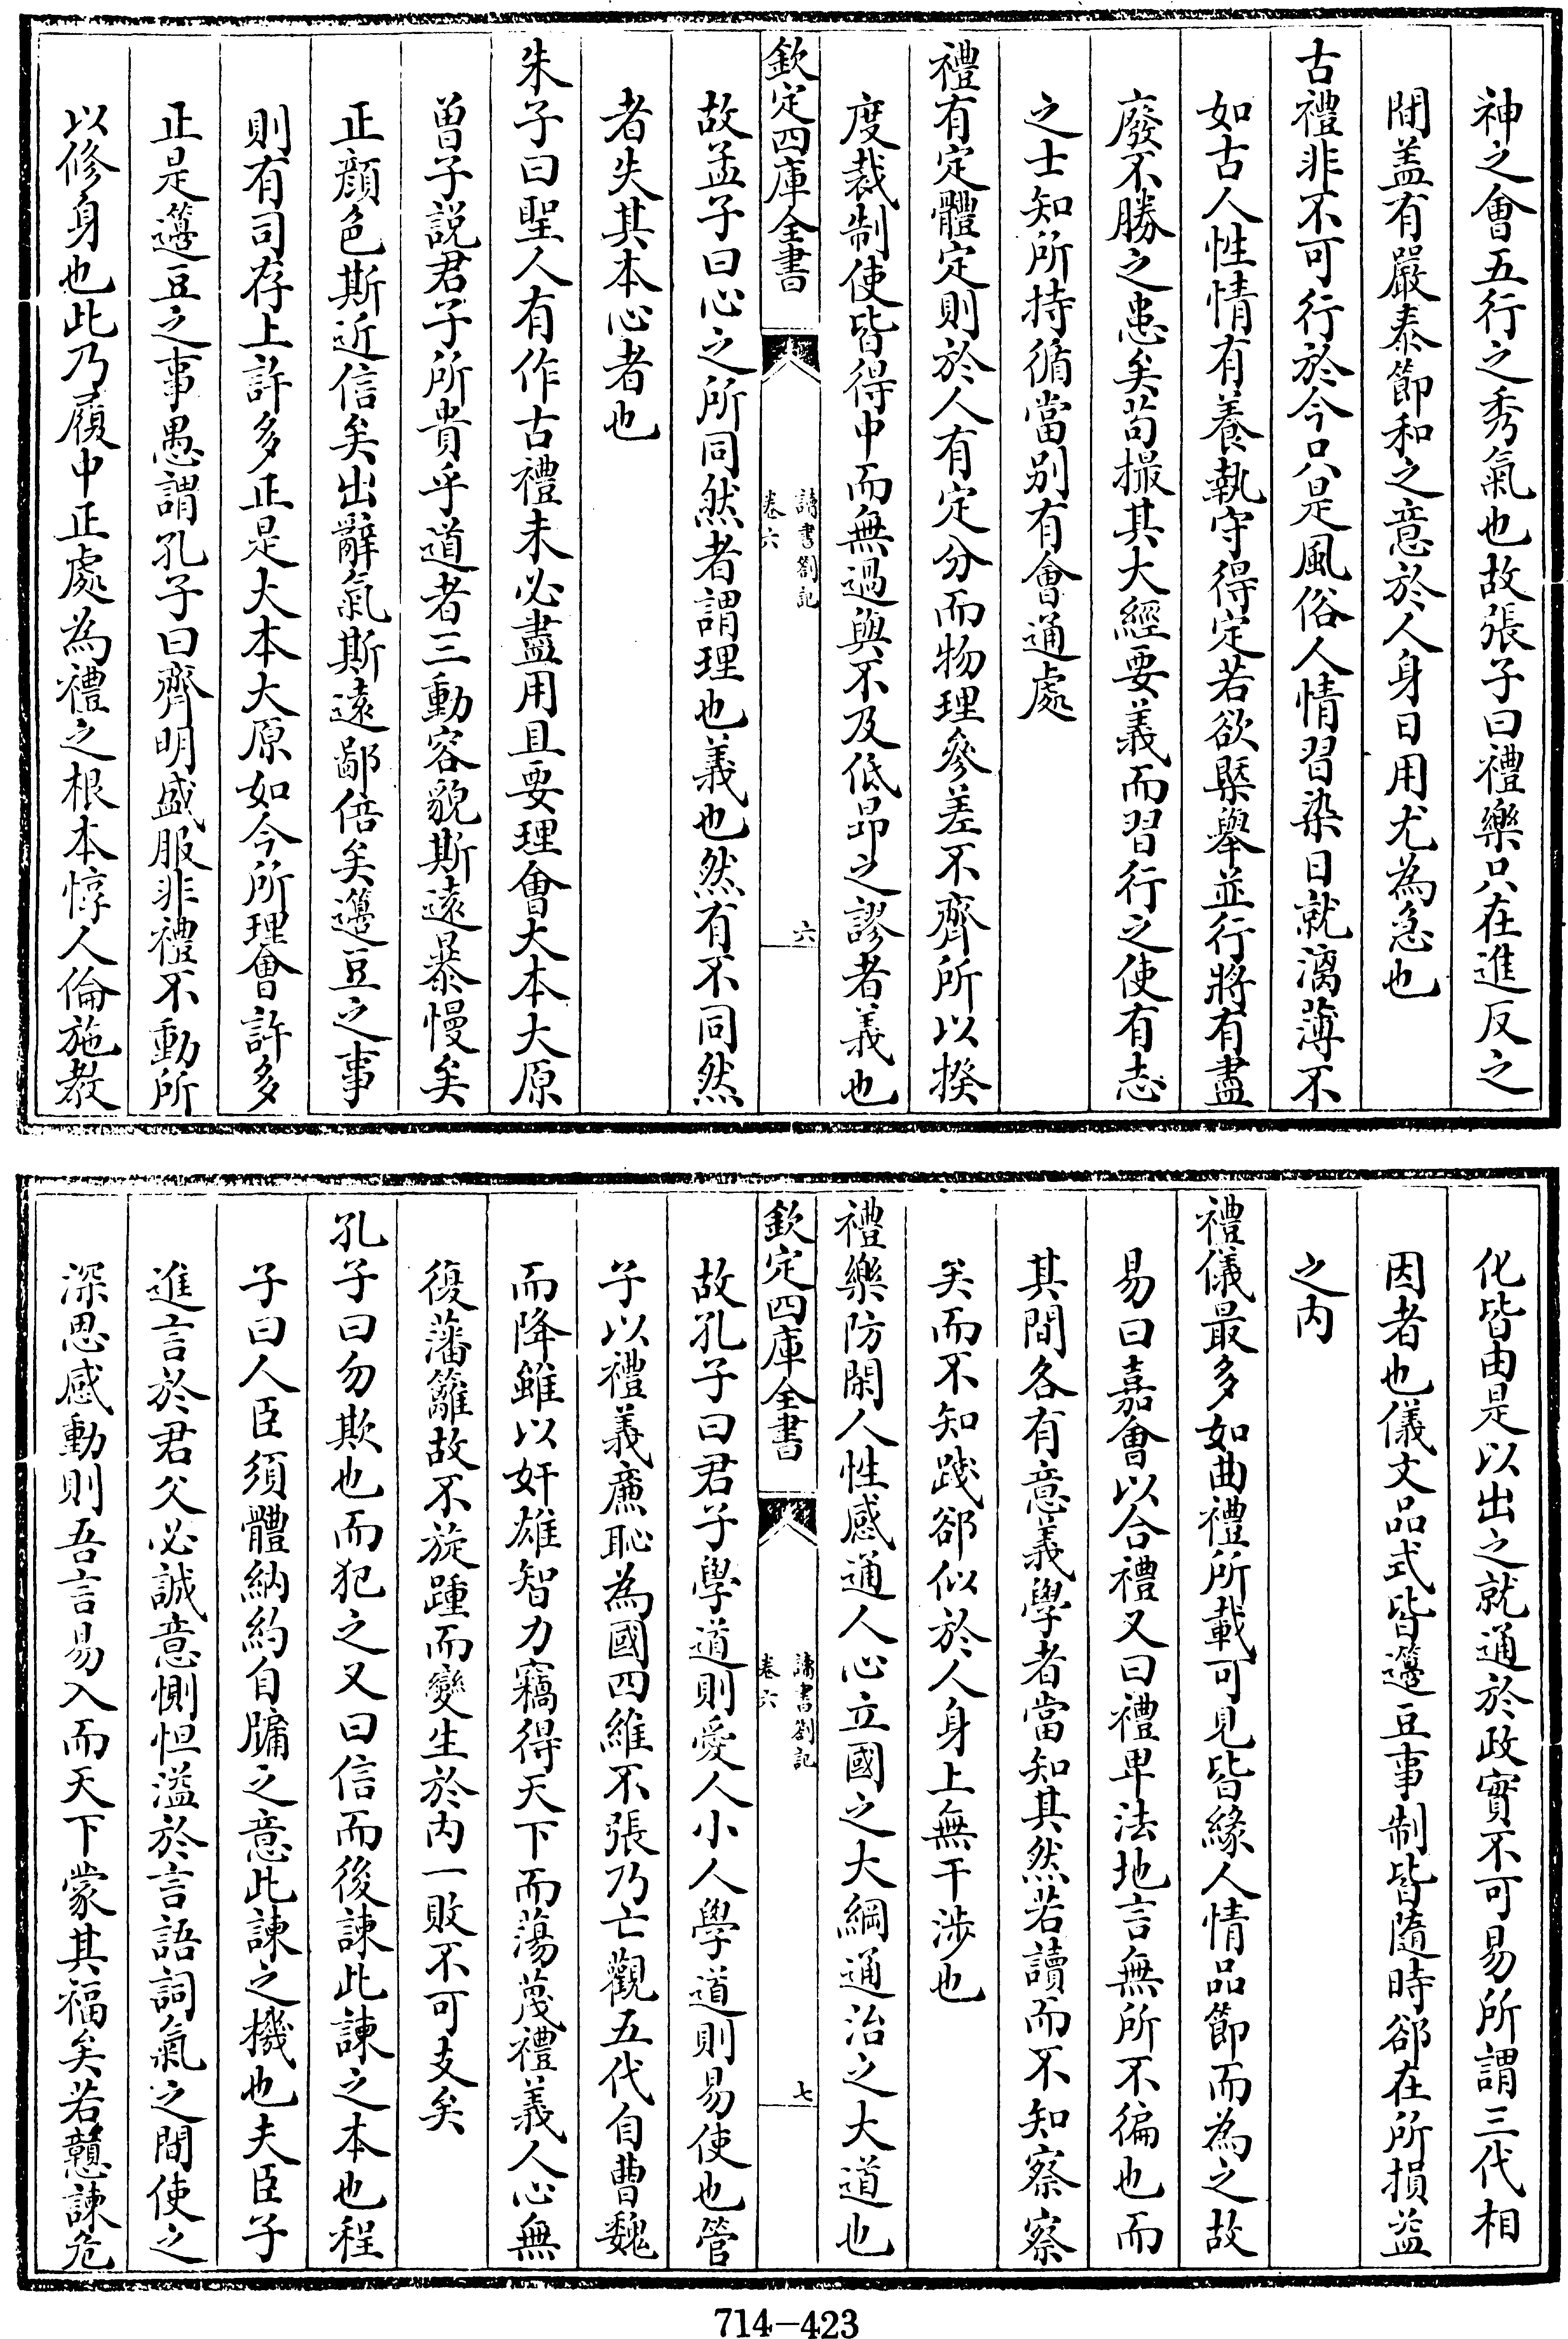 神之會五行之秀氣也故張子曰禮樂只在進反之
間盖有嚴泰節和之意於人身日用尤為急也
古禮非不可行於今只是風俗人情習染日就漓薄不
如古人性情有養執守得定若欲槩舉並行將有盡
廢不勝之患矣茍撮其大經要義而習行之使有志
之士知所持循當別有會通處
禮有定體定則於人有定分而物理參差不齊所以揆
度裁制使皆得中而無過與不及低昂之謬者義也
欽定四庫全書
讀書劄記
卷六
六
故孟子曰心之所同然者謂理也義也然有不同然
者失其本心者也
朱子曰聖人有作古禮未必盡用且要理會大本大原
曽子説君子所貴乎道者三動容貌斯遠暴慢矣
正顔色斯近信矣出辭氣斯遠鄙倍矣籩豆之事
則有司存上許多正是大本大原如今所理會許多
正是籩豆之事愚謂孔子曰齊明盛服非禮不動所
以修身也此乃履中正處為禮之根本惇人倫施教
化皆由是以出之就通於政實不可易所謂三代相
因者也儀文品式皆籩豆事制皆隨時郤在所損益
之内
禮儀最多如曲禮所載可見皆緣人情品節而為之故
易曰嘉會以合禮又曰禮卑法地言無所不徧也而
其間各有意義學者當知其然若讀而不知察察
矣而不知踐郤似於人身上無干涉也
禮樂防閑人性感通人心立國之大綱通治之大道也
欽定四庫全書
讀書劄記
卷六
七
故孔子曰君子學道則愛人小人學道則易使也管
子以禮義廉恥為國四維不張乃亡觀五代自曹魏
而降雖以奸雄智力竊得天下而蕩蔑禮義人心無
復藩籬故不旋踵而變生於内一敗不可支矣
孔子曰勿欺也而犯之又曰信而後諫此諫之本也程
子曰人臣須體納約自牖之意此諫之機也夫臣子
進言於君父必誠意惻怛溢於言語詞氣之間使之
深思感動則吾言易入而天下蒙其福矣若戇諫危
714-423